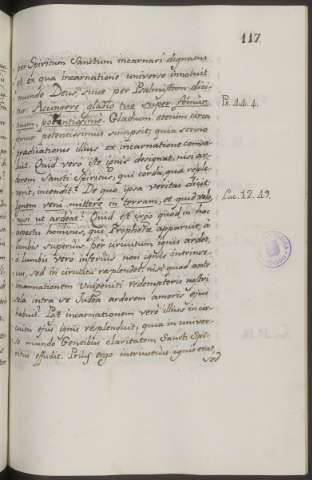 117
per Spiritum Sanctum incarnari dignatus
est, ex qua incarnatione universo innotuit
mundo Deus, sicut per Psalmistam dici-
tur: Accingere gladio tuo super femur
Ps. 44. 4.
tuum, potentissime. Gladium etenim circa
femur potentissimus sumpsit, quia sermo
prædicationis illius ex incarnatione conva-
luit. Quid vero iste ignis designat, nisi ar-
dorem Sancti Spiritus, qui corda, quæ reple-
verit, incendit? De quo ipsa veritas dicit:
Ignem veni mittere in terram, et quid volo,
Luc. 12. 49.
nisi ut ardeat? Quid est ergo quod in hac
specie hominis, qui Prophetæ apparuit, a
lumbis superius per circuitum ignis ardet,
a lumbis vero inferius non ignis intrinse-
cus, sed in circuitu resplendet, nisi quod ante
incarnationem Unigeniti redemptoris nostri
sola intra se Judæa ardorem amoris ejus
habuit? Post incarnationem vero illius in cir-
cuitu ejus ignis resplenduit, quia in univer-
so mundo Gentibus claritatem Sancti Spi-
ritus effudit. Prius ergo intrinsecus ignis erat,
sed